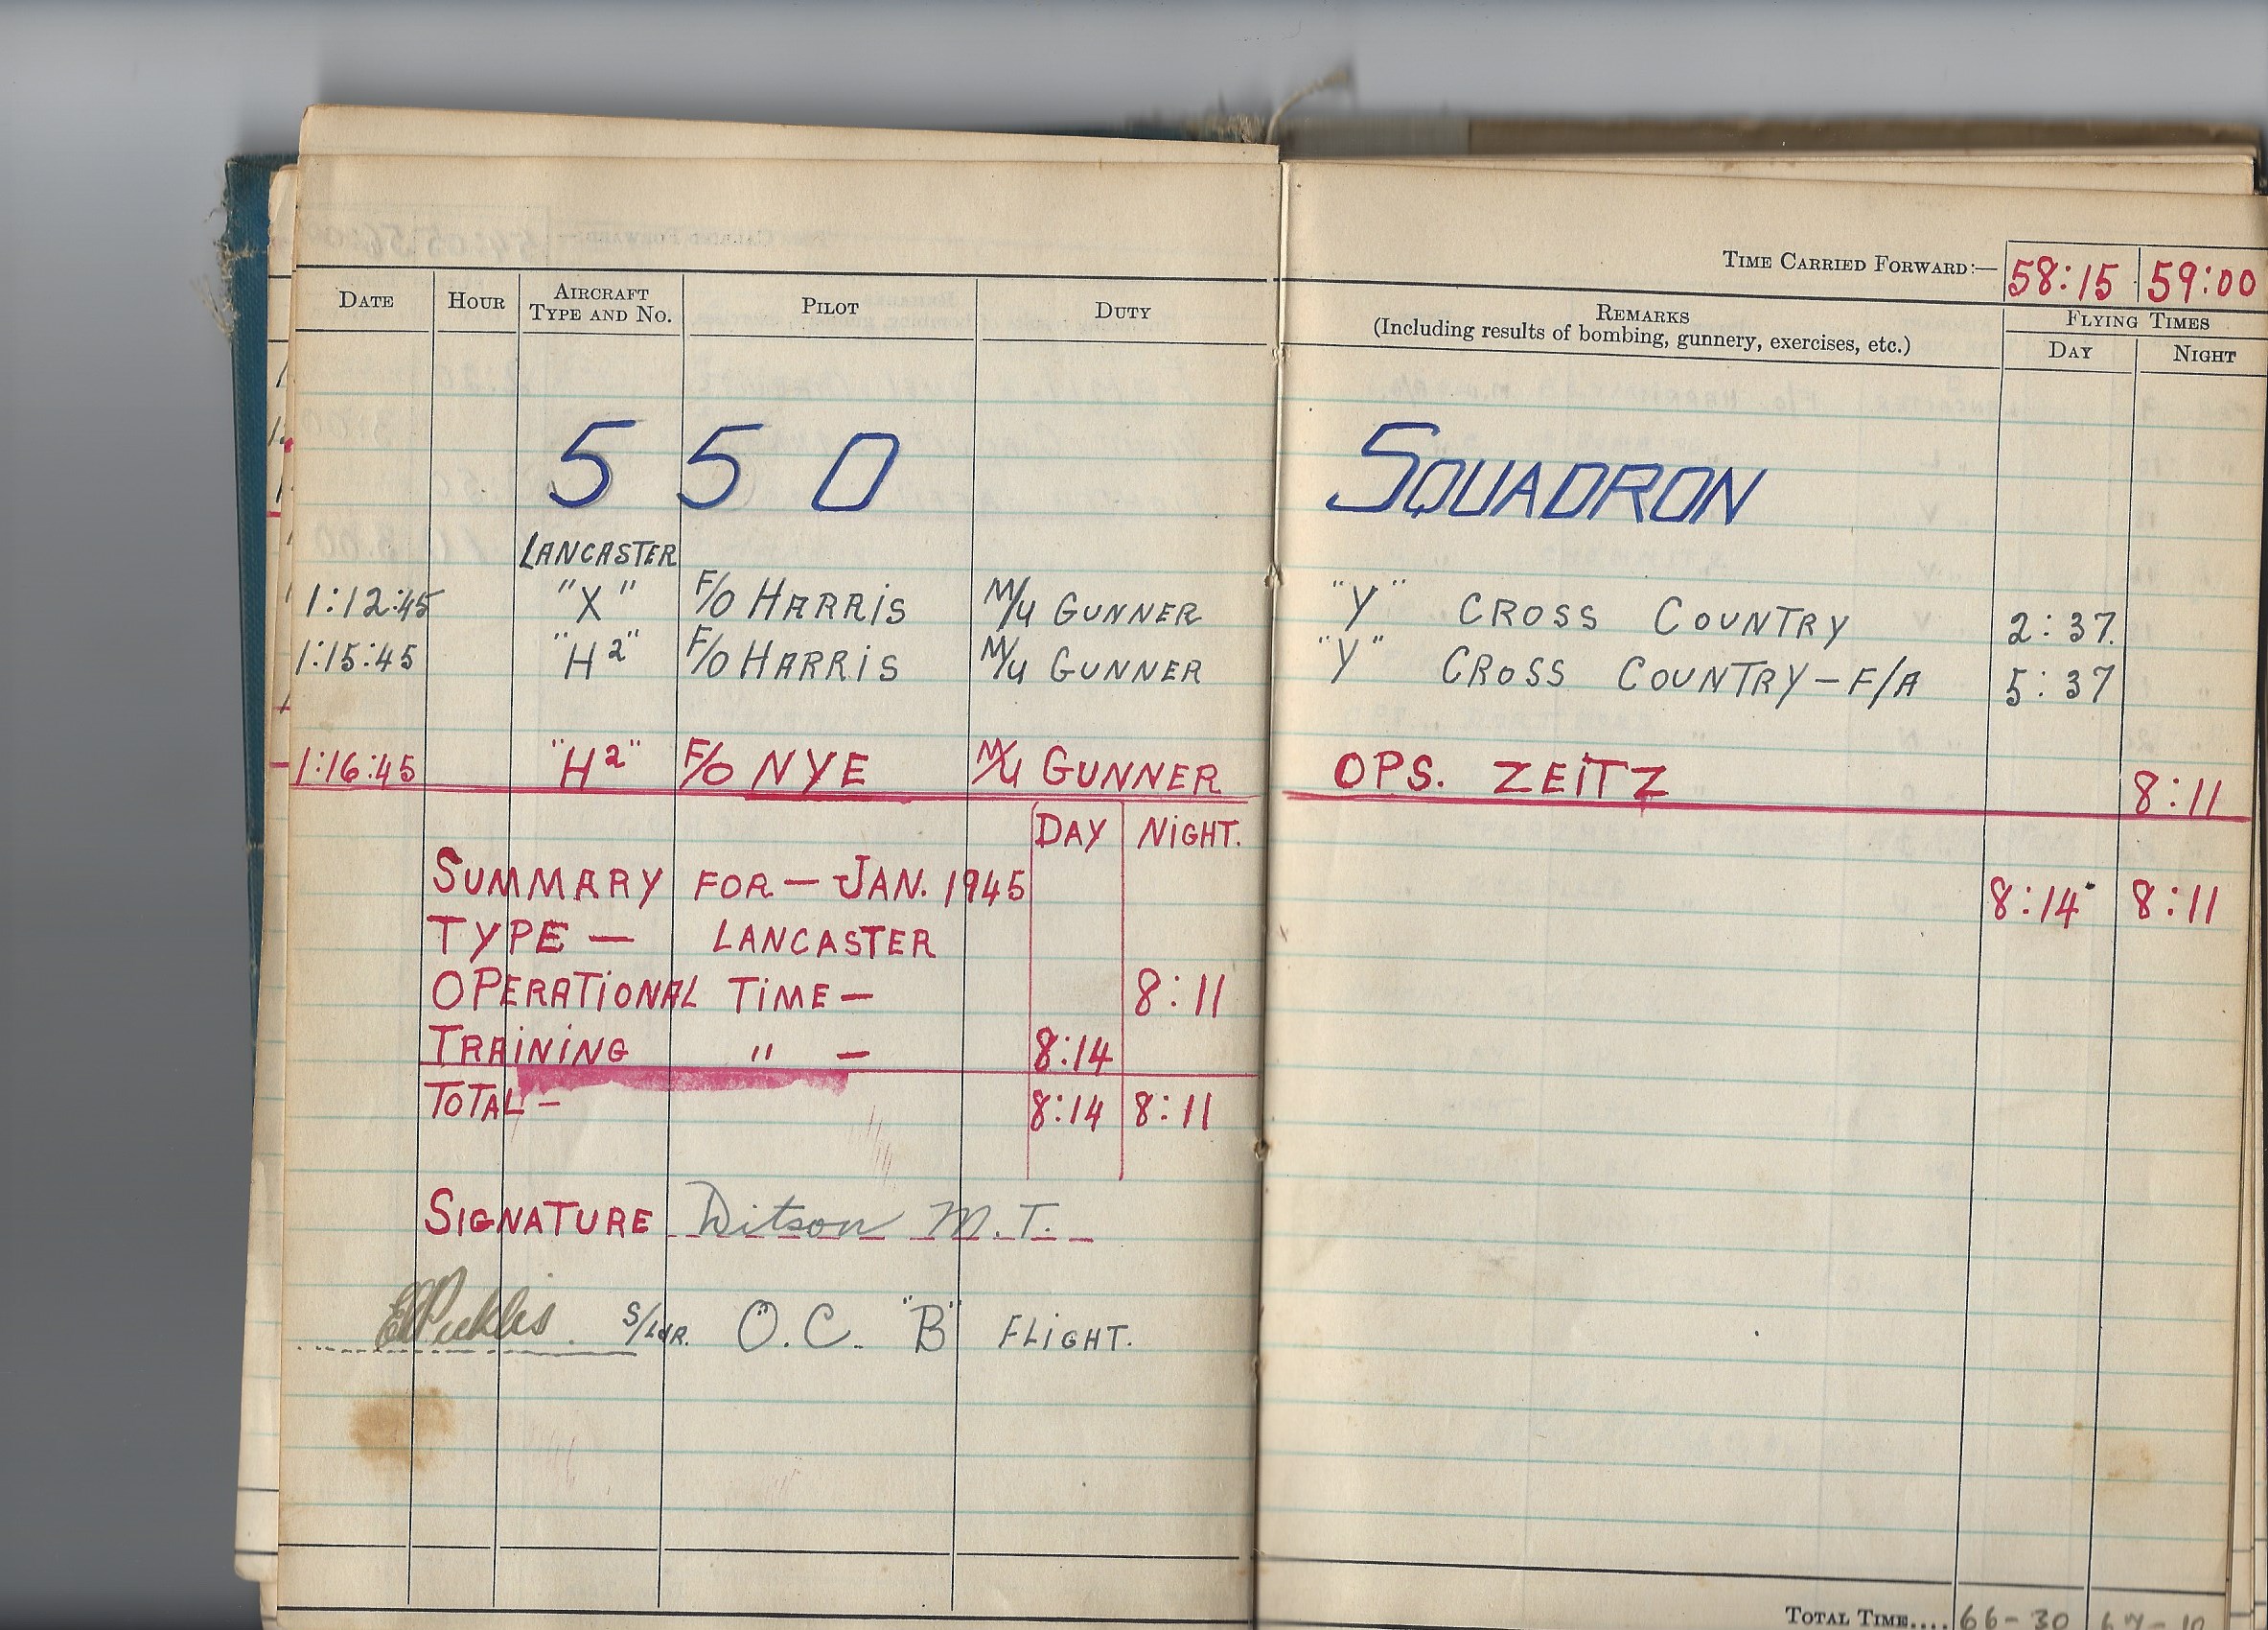 TIME CARRIED FORWARD:— 58:15 59:00
DATE HOUR AIRCRAFT TYPE AND NO. PILOT DUTY REMARKS (Including results of bombing, gunnery, exercises, etc.) FLYING TIMES DAY NIGHT
550 SQUADRON
LANCASTER
1:12:45 "X" F/O HARRIS M/U GUNNER "Y" CROSS COUNTRY 2:37
1:15:45 "H2" F/O HARRIS M/U GUNNER "Y" CROSS COUNTRY – F/A 5:37
1:16:45 "H2" F/O NYE M/U GUNNER OPS. ZEITZ 8:11
DAY NIGHT.
SUMMARY FOR — JAN. 1945 8:14 8:11
TYPE — LANCASTER
OPERATIONAL TIME — 8:11
TRAINING " — 8:14
TOTAL — 8:14 8:11
SIGNATURE Ditson M.T.
S/LdR. O.C. "B" FLIGHT.
TOTAL TIME.... 66-30 67-10